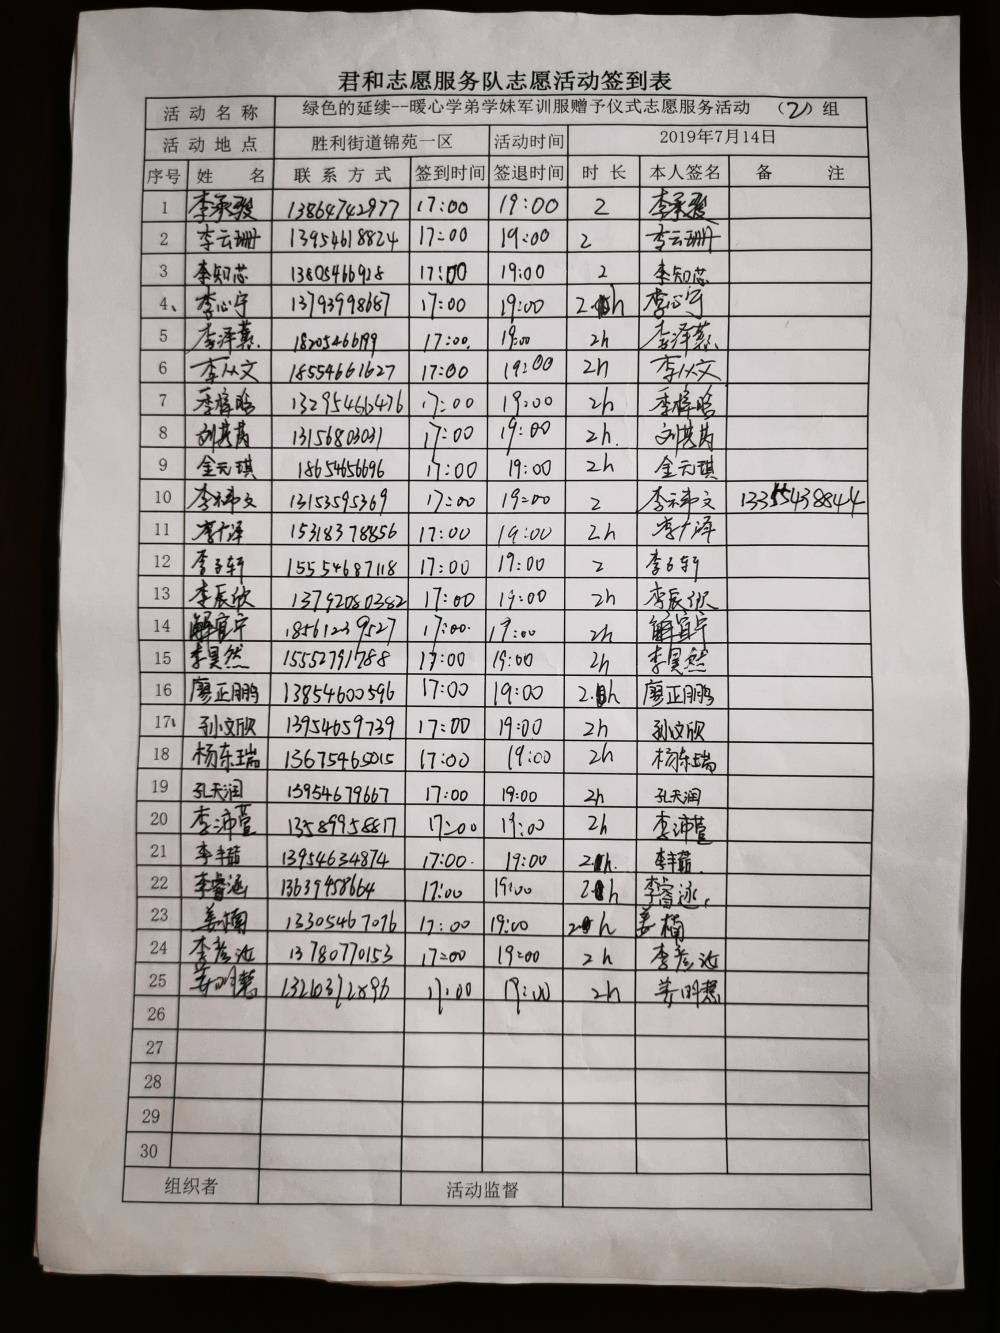 君和志愿服务队志愿活动签到表
活动名称 绿色的延续--暖心学弟学妹军训服赠予仪式志愿服务活动 （2）组
活动地点 胜利街道锦苑一区 活动时间 2019年7月14日
序号 姓名 联系方式 签到时间 签退时间 时长 本人签名 备注
1 李承骏 13864742977 17:00 19:00 2 李承骏
2 李云珊 13954618824 17:00 19:00 2 李云珊
3 李知芯 13805466928 17:00 19:00 2 李知芯
4、 李心宁 13793998687 17:00 19:00 2h 李心宁
5 李泽慧 18205466199 17:00 19:00 2h 李泽慧
6 李从文 18554661627 17:00 19:00 2h 李从文
7 季梓晗 13295466476 17:00 19:00 2h 季梓晗
8 刘芸芮 13156803031 17:00 19:00 2h. 刘芸芮
9 金元琪 18654656696 17:00 19:00 2h 金元琪
10 李祎文 13153595369 17:00 19:00 2 李祎文 13355438844
11 15318378856 17:00 19:00 2h
12 李子轩 15554687118 17:00 19:00 2 李子轩
13 李辰欣 13792080382 17:00 19:00 2h 李辰欣
14 解宜宁 18561239527 17:00 19:00 2h 解宜宁
15 李昊然 15552791788 17:00 19:00 2h 李昊然
16 廖正鹏 13854600596 17:00 19:00 2h 廖正鹏
17、 孙文欣 13954659739 17:00 19:00 2h 孙文欣
18 杨东瑞 13675465015 17:00 19:00 2h 杨东瑞
19 孔天润 13954679667 17:00 19:00 2h 孔天润
20 李沛萱 13589958817 17:00 19:00 2h 李沛萱
21 李茹 13954634874 17:00 19:00 2h. 李茹
22 李睿泳 13639458664 17:00 19:00 2h 李睿泳
23 姜楠 13305467076 17:00 19:00 2h 姜楠
24 李彦汝 13780770153 17:00 19:00 2h 李彦汝
25 姜明慧 13210372896 17:00 19:00 2h 姜明慧
26
27
28
29
30
组织者 活动监督